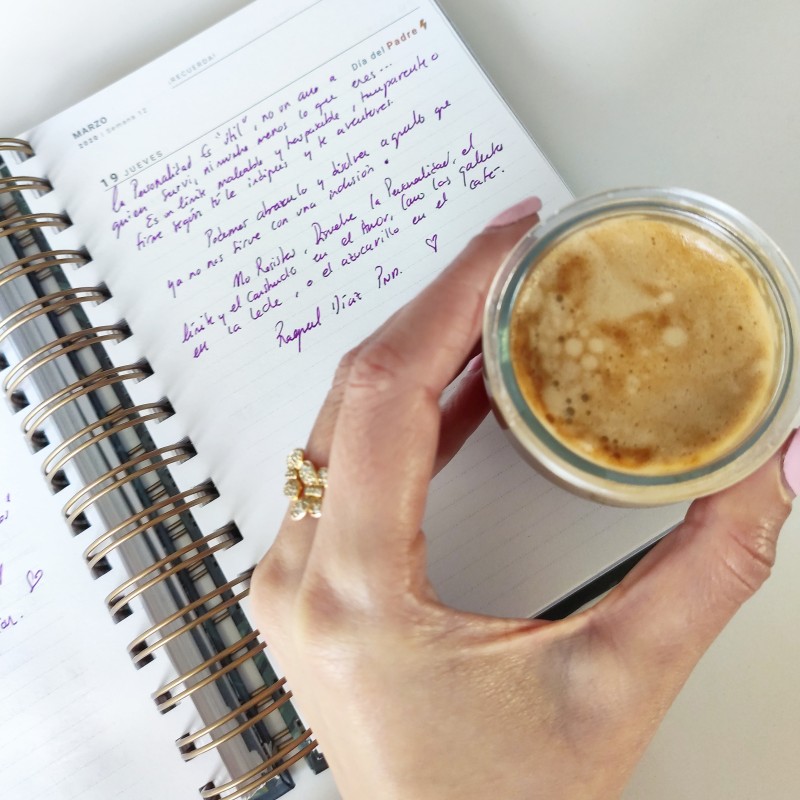 ¡RECUERDA!
MARZO
2020 | Semana 12
19 JUEVES
Día del Padre
La Personalidad Es "útil", no en aras a
quien servir, ni mucho menos lo que eres...
Es un límite maleable y traspasable, transparente o
firme según tú le indiques y te aventures.
Podemos abrazarlo y disolver aquello que
ya no nos sirve con una inclusión.
No Resistir, Disolver la Personalidad, el
límite y el Constructo en el Amor, Como las galletas
en la leche, o el azucarillo en el café.
Raquel Díaz